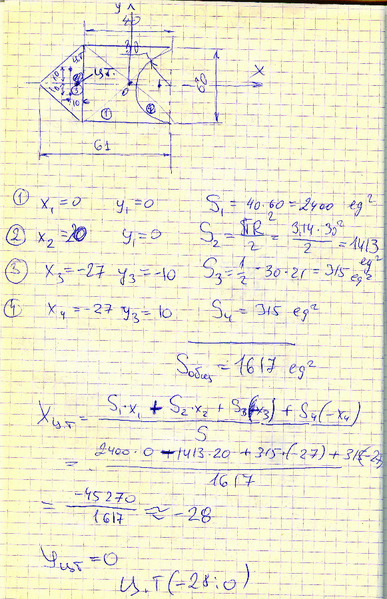 y
40
30
ц.т.
10
10
ц.т.
x
0
60
10
1
2
61
1 x₁ = 0 y₁ = 0 S₁ = 40·60 = 2400 ед²
2 x₂ = 20 y₁ = 0 S₂ = πR²/2 = 3,14·30²/2 = 1413 ед²
3 x₃ = -27 y₃ = -10 S₃ = 1/2·30·21 = 315 ед²
4 x₄ = -27 y₃ = 10 S₄ = 315 ед²
Sобщ = 1617 ед²
Xц.т = S₁·x₁ + S₂·x₂ + S₃(-x₃) + S₄(-x₄) / S
= 2400·0 - 1413·20 + 315·(-27) + 315(-27) / 1617
= -45270 / 1617 ≈ -28
Yц.т = 0
ц.т (-28;0)